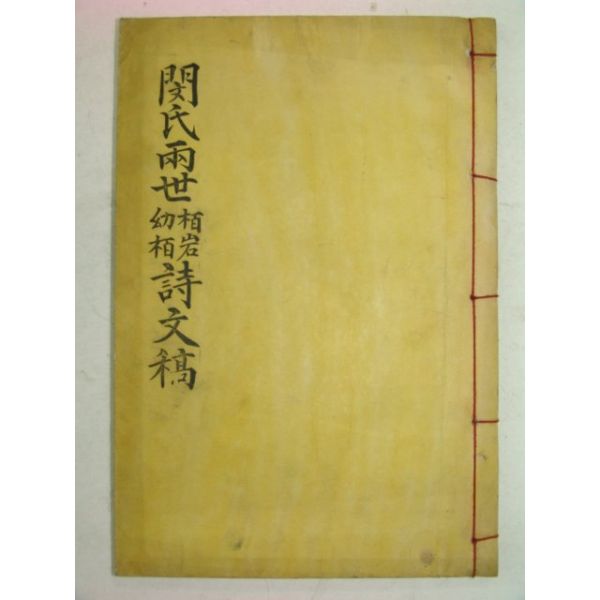 閔氏兩世栢岩幼栢詩文稿